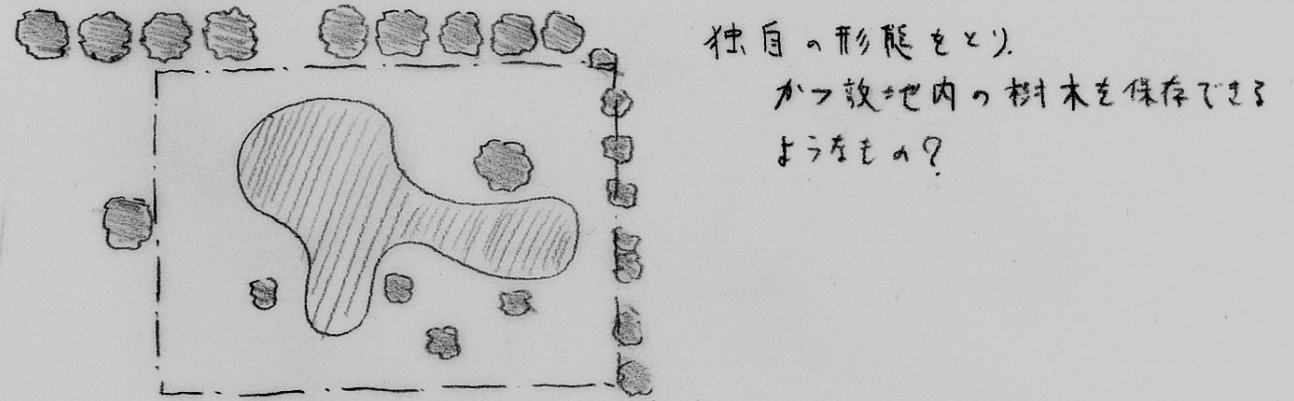 独自の形態をとり、
かつ敷地内の樹木を保存できる
ようなもの？